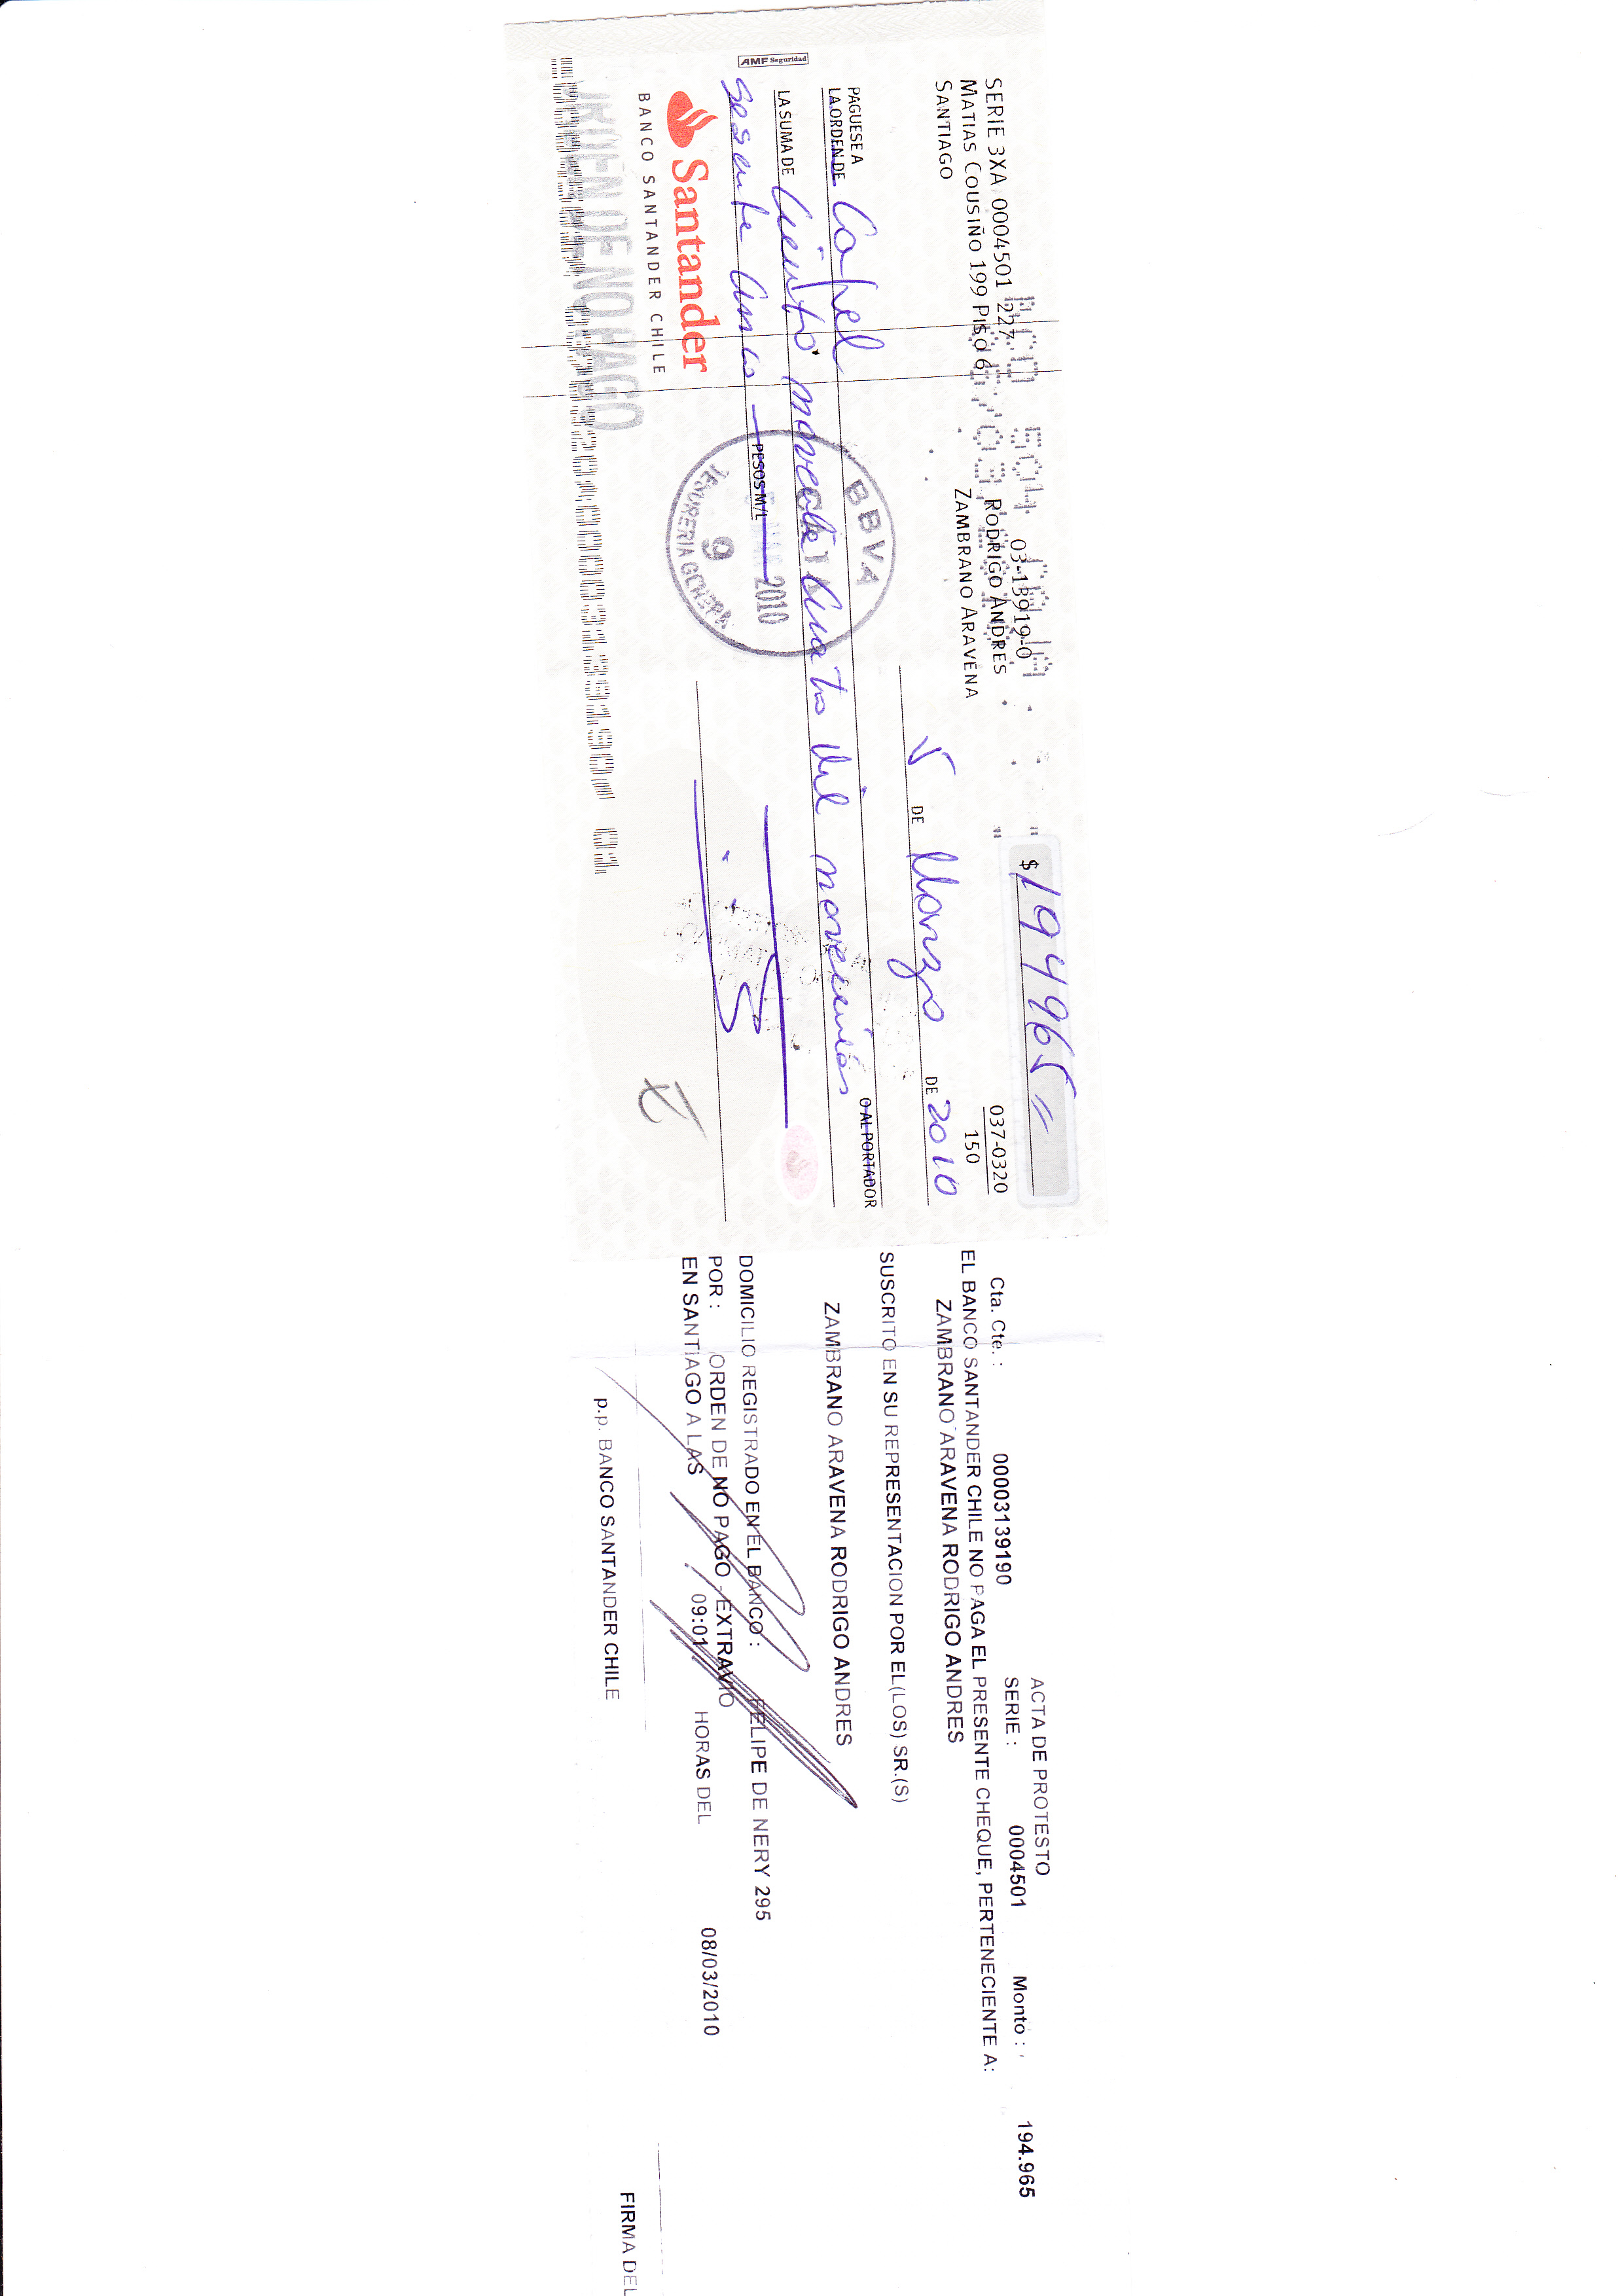 SERIE 3XA 0004501 227
MATIAS COUSIÑO 199 PISO 6
SANTIAGO
03-13919-0
RODRIGO ANDRES
ZAMBRANO ARAVENA
$ 194965 =
037-0320
150
5 DE Marzo DE 2010
PAGUESE A
LA ORDEN DE Copel
O AL PORTADOR
LA SUMA DE Ciento noventa y cuatro mil novecientos
sesenta cinco PESOS M/L
AMF Seguridad
Santander
BANCO SANTANDER CHILE
BBVA
2010
9
TESORERIA GENERAL
ORDEN DE NO PAGO
ACTA DE PROTESTO
Cta. Cte. : 00003139190 SERIE : 0004501 Monto : 194.965
EL BANCO SANTANDER CHILE NO PAGA EL PRESENTE CHEQUE, PERTENECIENTE A:
ZAMBRANO ARAVENA RODRIGO ANDRES
SUSCRITO EN SU REPRESENTACION POR EL(LOS) SR.(S)
ZAMBRANO ARAVENA RODRIGO ANDRES
DOMICILIO REGISTRADO EN EL BANCO : FELIPE DE NERY 295
POR : ORDEN DE NO PAGO - EXTRAVIO
EN SANTIAGO A LAS 09:01 HORAS DEL 08/03/2010
p.p. BANCO SANTANDER CHILE
FIRMA DEL